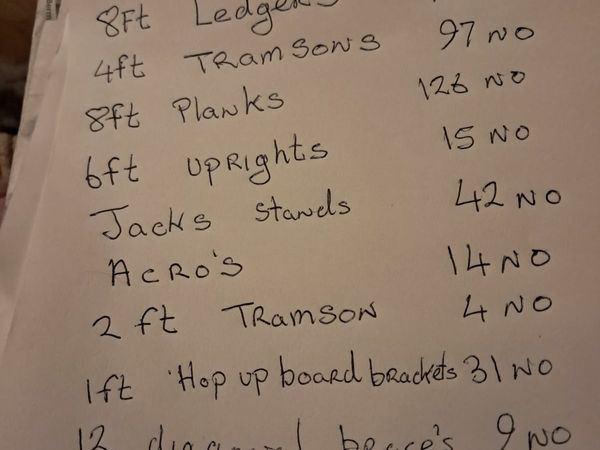 8Ft Ledgers
4ft TRAMSONS 97 NO
8ft Planks 126 NO
6ft UPRIghts 15 NO
Jacks Stands 42 NO
ACRO'S 14 NO
2 ft TRAMSON 4 NO
1ft 'Hop up board brackets 31 NO
12 diagonal brace's 9 NO